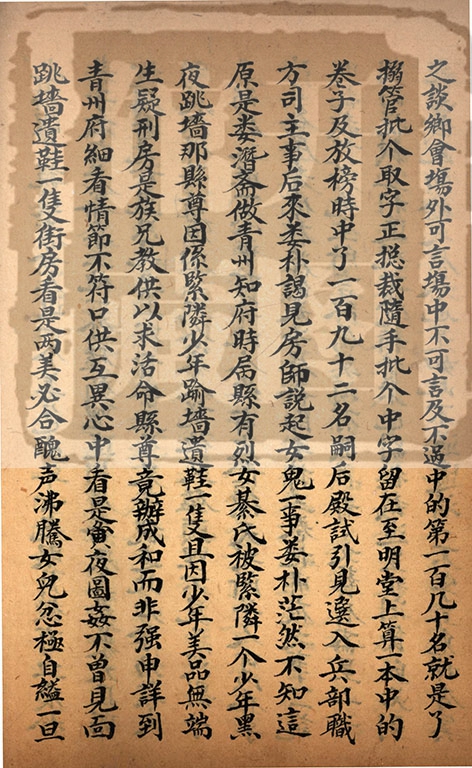 之談鄉會場外可言場中不可言及不過中的第一百几十名就是了
搦管批个取字正揔裁隨手批个中字留在至明堂上算一本中的
卷子及放榜時中了一百九十二名嗣后殿試引見選入兵部職
方司主事后來娄朴謁見房師説起女鬼一事娄朴茫然不知這
原是娄潛斋做青州知府時屬縣有烈女綦氏被緊隣一个少年黑
夜跳墙那縣尊因係緊隣少年踰墙遺鞋一隻且因少年美品無端
生疑刑房是族兄教供以求活命縣尊竟辦成和而非强申詳到
青州府細看情節不符口供互異心中看是畣夜圖姦不曾見面
跳墻遺鞋一隻街房看是两美必合醜声沸騰女兒忿極自縊一旦